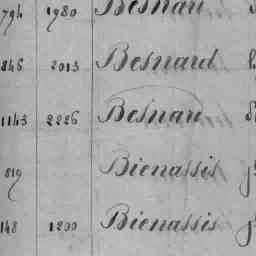 794 1980 Besnard
846 2013 Besnard
1143 2226 Besnard
819 Bienassis
148 1200 Bienassis